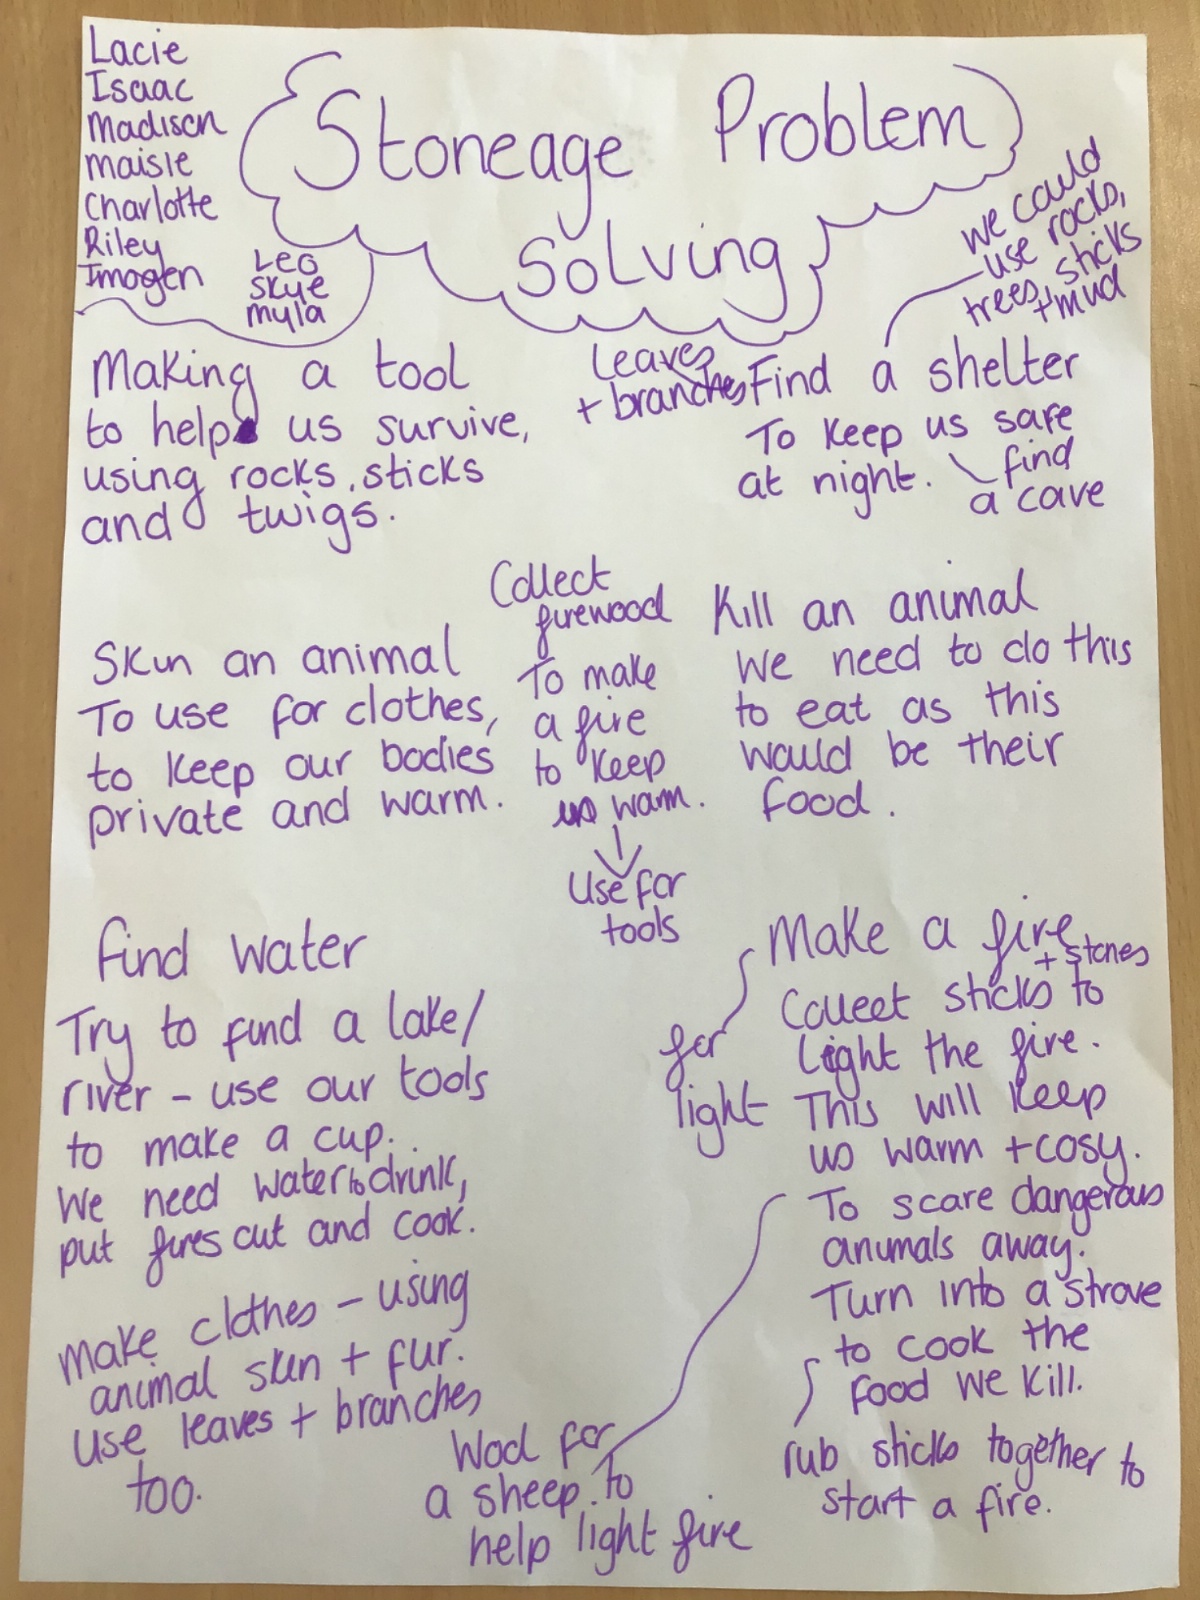 Lacie
Isaac
Madison
Maisie
Charlotte
Riley
Imogen
Leo
Skye
myla
Stoneage Problem
Solving
we could
use rocks,
trees, sticks
+ mud
Making a tool
to help us survive,
using rocks, sticks
and twigs.
Leaves
+ branches
Find a shelter
To keep us safe
at night.
find
a cave
Collect
firewood
To make
a fire
to keep
us warm.
Use for
tools
Skin an animal
To use for clothes,
to keep our bodies
private and warm.
Kill an animal
We need to do this
to eat as this
would be their
food.
find water
Try to find a lake/
river - use our tools
to make a cup.
We need water to drink,
put fires out and cook.
make clothes - using
animal skin + fur.
use leaves + branches
too.
Make a fire
+ stones
Collect sticks to
Light the fire.
This will keep
us warm + cosy.
To scare dangerous
animals away.
Turn into a strove
to cook the
food we kill.
for
light
rub sticks together to
start a fire.
Wool for
a sheep. to
help light fire